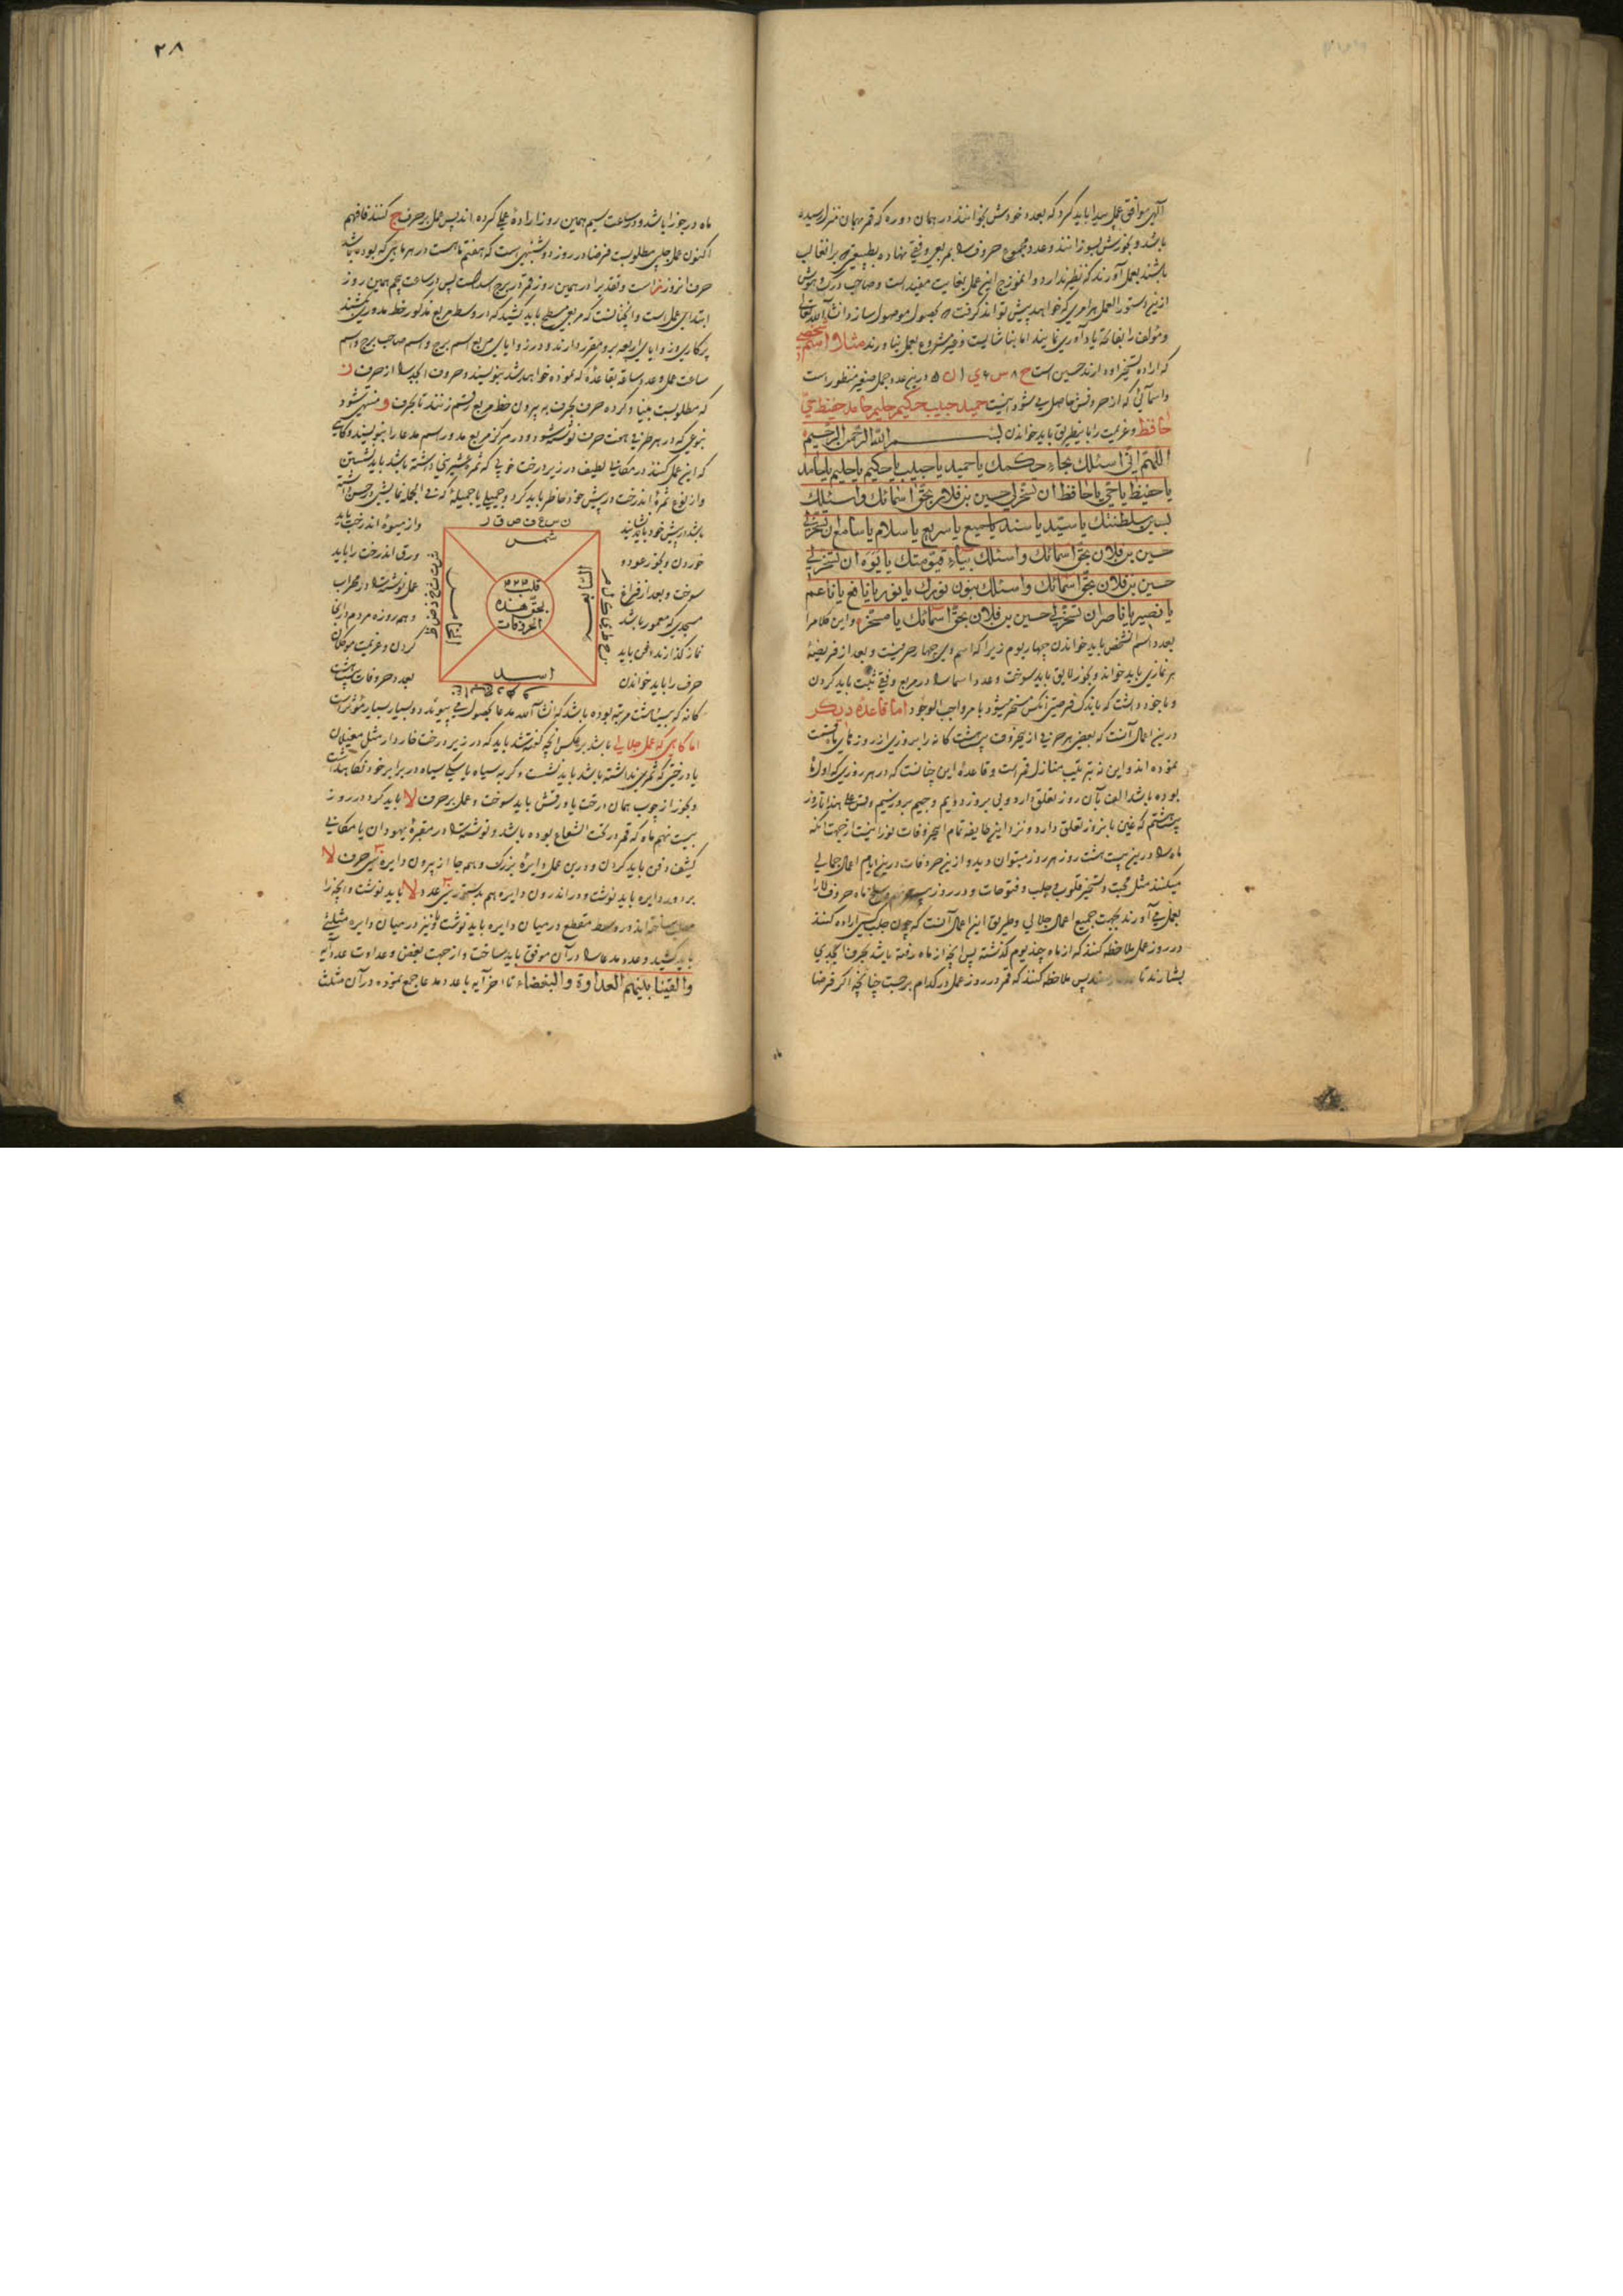 الهی موافق عمل پیدا باید کرد که بعدد خودش بخوانند در همان دوره که قمر بهمان منزل رسیده
باشد و بخورش بسوزانند و عدد مجموع حروف را بمربع وفقی نهاده
باشند بعمل آورند که نظیر ندارد و انموزج این عمل بغایت مفید است و صاحب درک و هوش
ازین دستور العمل هر امری که خواهد پیش تواند گرفت و بحصول موصول سازد انشاء الله تعالی
و مؤلف را بفاتحه یاد آوری نمایند اما بنا شایست و غیر مشروع بعمل نیاورند مثلا اسم شخصی
که اراده تسخیر او دارند حسین است ح ۸ س ۶ ی ۱ ن ۵ درین عدد جمل صغیر منظور است
و اسمائی که از حروفش حاصل می شود اینست حمید حبیب حکیم حلیم حامد حفیظ حی
حافظ و عزیمت را باینطریق باید خواندن بسم الله الرحمن الرحیم
اللهم انی اسئلک بحاء حکمک یا حمید یا حبیب یا حکیم یا حلیم یا حامد
یا حفیظ یا حی یا حافظ ان تسخر لی حسین بن فلان بحق اسمائک و اسئلک
بسین سلطنتک یا سید یا سند یا سمیع یا سریع یا سلام یا سامع ان تسخر لی
حسین بن فلان بحق اسمائک و اسئلک بیاء قیومتک یا یوه ان تسخر لی
حسین بن فلان بحق اسمائک و اسئلک بنون نورک یا نور یا نافع یا ناعم
یا نصیر یا ناصر ان تسخر لی حسین بن فلان بحق اسمائک یا مسخر و این کلام را
بعدد اسم انشخص باید خواندن چهار یوم زیرا که اسم وی چهار حرفیست و بعد از فریضهٔ
هر نمازی باید خواند و بخور لایق باید سوخت و عدد اسما را در مربع وفقی ثبت باید کردن
و با خود داشت که باندک فرصتی انکس مسخر میشود بامر واجب الوجود اما قاعدهٔ دیگر
درین اعمال آنست که بعضی هر حرفی از حروف بیست هشت کانه را بروزی از روزهای ماه قسمت
نموده اند و این نه بترتیب منازل قمر است و قاعدهٔ این چنانست که در هر روزی که اول ماه
بوده باشد الف بآن روز تعلق دارد و بی بروز دوّیم و جیم بروز سیم و قس علی هذا تا روز
بیست هشتم که غین بانروز تعلق دارد و نزد این طایفه تمام
ماه را درین بیست هشت روز هر روز میتوان دید و ازین حروفات درین ایام اعمال جمالی
میکنند مثل محبت و تسخیر قلوب و جلب و فتوحات و در روز و سلخ ماه حروف لا را
بعمل می آورند بجهت جمیع اعمال جلالی و طریق این اعمال آنست که چون جلب کسی اراده کنند
در روز عمل ملاحظه کنند که از ماه چند یوم گذشته پس آنچه از ماه رفته باشد بحرف ابجدی
بشمارند تا پس ملاحظه کنند که قمر در روز عمل در کدام برجست چنانچه اگر فرضا
ماه
۲۸
ماه در جوزا باشد و در ساعت سیم همین روز ارادهٔ عملی کرده اند پس عمل بر حرف ج کنند فافهم
اکنون عمل جلبی مطلوبست فرضا در روز دوشنبهی است که هفتم ماهست در هر ماهی که بوده باشد
حرف انروز ز است و تقدیرا در همین روز قمر در برج اسد است پس از ساعت پنجم همین روز
ابتدای عمل است و انچنانست که مربعی مسطح باید کشید که از وسط مربع مذکور خط مدوری کشند
پرکاری و زوایای اربعه برو مقرر دارند و در زوایای مربع اسم برج و اسم صاحب برج و اسم
ساعت عمل و عدد ساعه بقاعدهٔ که نموده خواهد شد بنویسند و حروف ابجد را از حرف ز
که مطلوبست بنیاد کرده حرف بحرف به بیرون خط مربع رقم زنند تا بحرف و منتهی شود
بنوعی که در هر طرفی هفت حرف نوشته شود و در مرکز مربع مدور اسم مدعا را بنویسند و کاهی
که این عمل کنند در مکانی لطیف در زیر درخت خوبی که ثمره شیرینی داشته باشد باید نشستن
و از نوع ثمرهٔ اندرخت در پیش خود حاضر باید کرد و جمیلی یا جمیلهٔ که فی الجمله نمایشی در حسن داشته
باشد در پیش خود باید نشانید
و از میوهٔ اندرخت باید
خوردن و بخور عود و
ورق اندرخت را باید
سوخت و بعد از فراغ
عمل نوشته را در محراب
مسجدی که معمور باشد
و همه روزه مردم در انجا
نماز گذارند دفن باید
کردن و عزیمت موکلان
حرف را باید خواندن
بعدد حروفات بیست هشت
ن س ع ف ص ق ر
شمس
قلب ۳۲۳
بحق هذه
الحروفات
اسد
ز ح ط ی ک ل م
ش ت ث خ ذ ض ظ
غ ا ب ج د ه و
کانه که بیست هشت مرتبه بوده باشد که انشاء الله مدعا بحصول می پیوندد و بسیار بسیار مؤثر است
اما کاهی که عمل جلالی باشد بر عکس انچه گفته شد باید که در زیر درخت خاردار مثل مغیلان
یا درختی که ثمری نداشته باشد باید نشست و کربه سیاه یا سک سیاه در برابر خود نکاه داشت
و بخور از چوب همان درخت یا ورقش باید سوخت و عمل بر حرف لا باید کرد در روز
بیست نهم ماه که قمر در تحت الشعاع بوده باشد و نوشته را در مقبرهٔ یهودان یا مکانی
کثیف دفن باید کردن و درین عمل دایرهٔ بزرک و همه جا از بیرون دایره سی حرف لا
بر دور دایره باید نوشت و در اندرون دایره هم بدستور سی عدد لا باید نوشت و انچه را
در وسط مقطع در میان دایره باید نوشت و نیز در میان دایره مثلثی
باید کشید و عدد مدعا را در آن موفق باید ساخت و از جهت بغض و عداوت عدد آیه
والقینا بینهم العداوة والبغضاء تا اخر آیه با عدد مدعا جمع نموده در آن مثلث